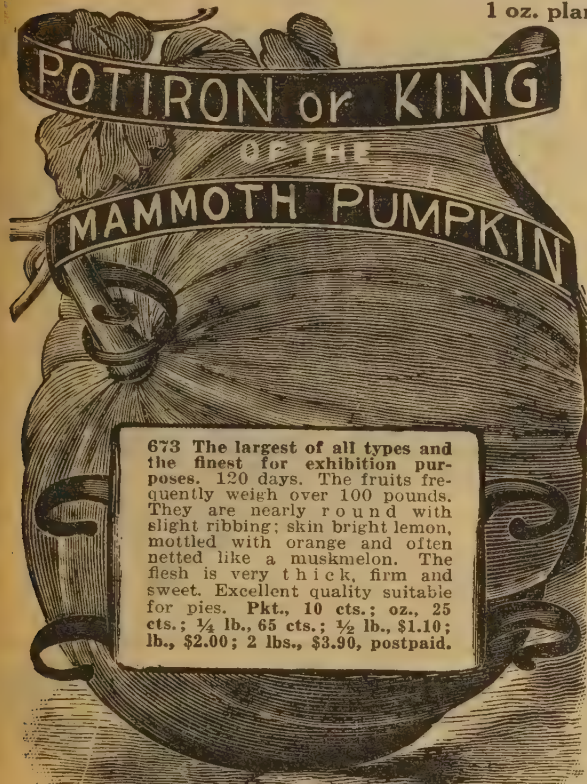 1 oz.
POTIRON or KING
OF THE
MAMMOTH PUMPKIN
673 The largest of all types and
the finest for exhibition pur-
poses. 120 days. The fruits fre-
quently weigh over 100 pounds.
They are nearly round with
slight ribbing; skin bright lemon,
mottled with orange and often
netted like a muskmelon. The
flesh is very thick, firm and
sweet. Excellent quality suitable
for pies. Pkt., 10 cts.; oz., 25
cts.; ¼ lb., 65 cts.; ½ lb., $1.10;
lb., $2.00; 2 lbs., $3.90, postpaid.